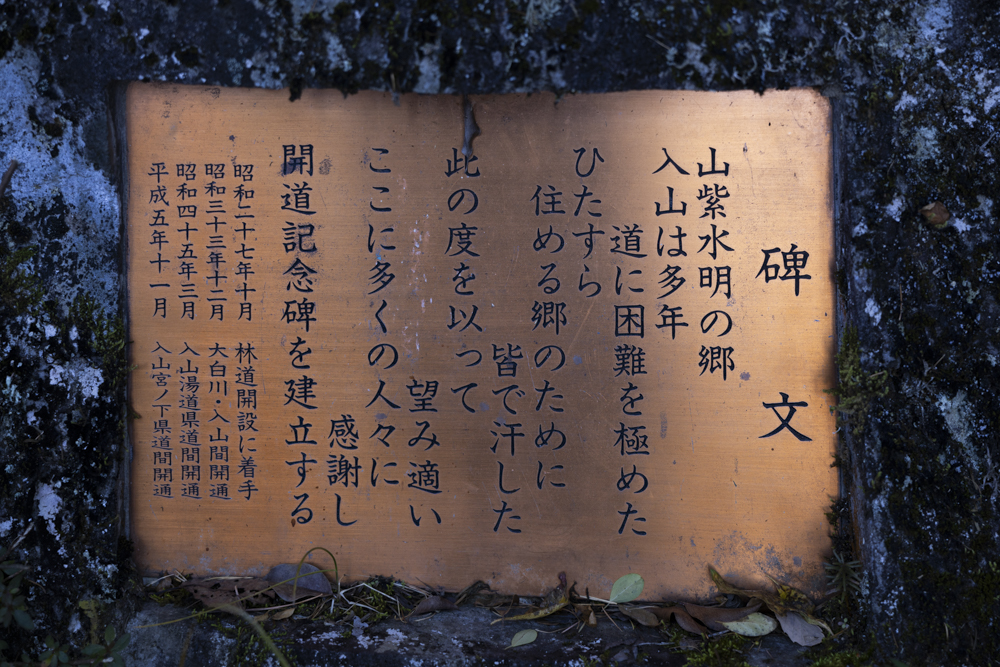 碑文
山紫水明の郷
入山は多年
道に困難を極めた
ひたすら
住める郷のために
皆で汗した
此の度を以って
望み適い
ここに多くの人々に
感謝し
開道記念碑を建立する
昭和二十七年十月 林道開設に着手
昭和三十三年十二月 大白川・入山間開通
昭和四十五年三月 入山湯道県道間開通
平成五年十一月 入山宮ノ下県道間開通